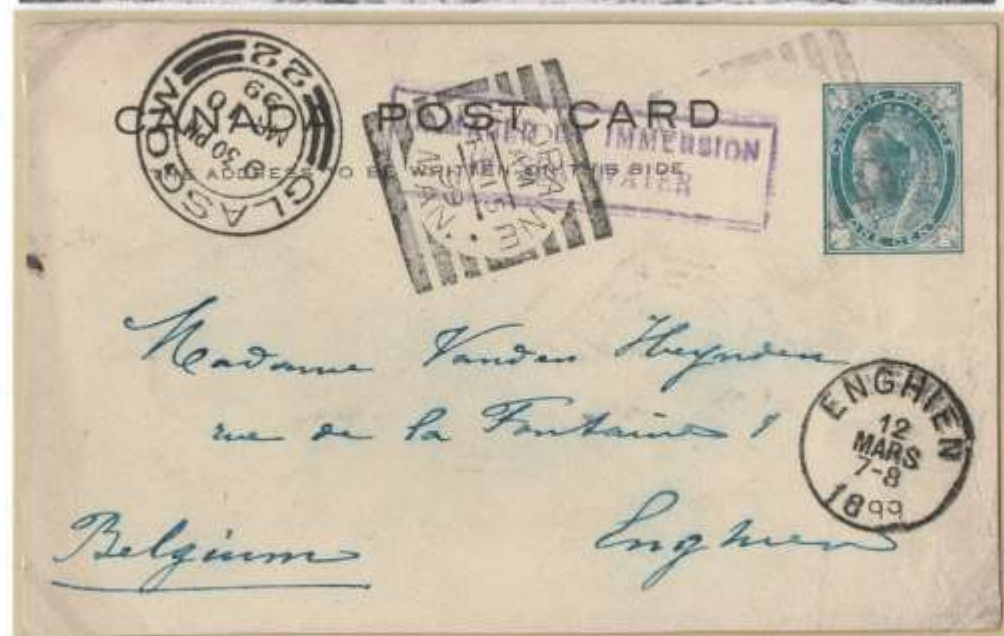 CANADA POST CARD
THE ADDRESS TO BE WRITTEN ON THIS SIDE
GLASGOW
8 30 PM
99
22
BY IMMERSION
WATER
LORRAINE
MAN
CANADA POSTAGE
ONE CENT
Madame Vanden Heynden
rue de la Fontaine 1
Enghien
Belgium
ENGHIEN
12
MARS
7-8
1899